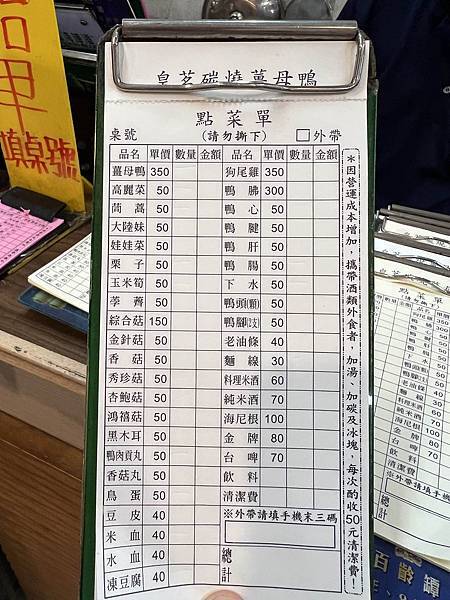 皇茗碳燒薑母鴨
點菜單
桌號 (請勿撕下) □外帶
品名 單價 數量 金額 品名 單價 數量 金額
薑母鴨 350 狗尾雞 350
高麗菜 50 鴨腸 300
茼蒿 50 鴨心 50
大陸妹 50 鴨腱 50
娃娃菜 50 鴨肝 50
栗子 50 鴨腸 50
玉米筍 50 下水 50
荸薺 50 鴨頭(顆) 50
綜合菇 150 鴨腳(支) 50
金針菇 50 老油條 40
香菇 50 麵線 30
秀珍菇 50 料理米酒 60
杏鮑菇 50 純米酒 70
鴻禧菇 50 海尼根 100
黑木耳 50 金牌 80
鴨肉貢丸 50 台啤 70
香菇丸 50 飲料
鳥蛋 50 清潔費
豆皮 40 ※外帶請填手機末三碼
米血 40
水血 40 總計
凍豆腐 40
＊因營運成本增加，攜帶酒類外食者，加湯、加碳及冰塊，每次酌收50元清潔費！
填桌號
點菜單
狗尾雞 350
老油條 40
麵線 30
料理米酒 60
純米酒 70
海尼根 100
金牌 80
台啤 70
飲料
清潔費
※外帶請填手機
總計
百齡罐